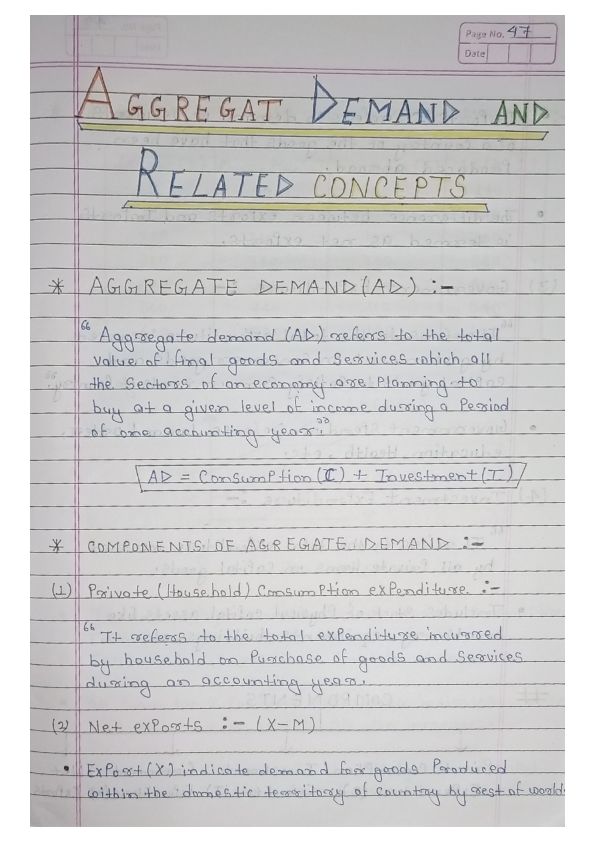 Page No. 47
Date
AGGREGAT DEMAND AND
RELATED CONCEPTS
* AGGREGATE DEMAND (AD) :-
“Aggregate demand (AD) refers to the total
value of final goods and services which all
the Sectors of an economy are Planning to
buy at a given level of income during a Period
of one accounting year.”
AD = Consumption (C) + Investment (I)
* COMPONENTS OF AGREGATE DEMAND :-
(1) Private (Household) Consumption expenditure. :-
“It refers to the total expenditure incurred
by household on Purchase of goods and Services
during an accounting year.
(2) Net exports :- (X-M)
• Export (X) indicate demand for goods Produced
within the domestic territory of country by rest of world.